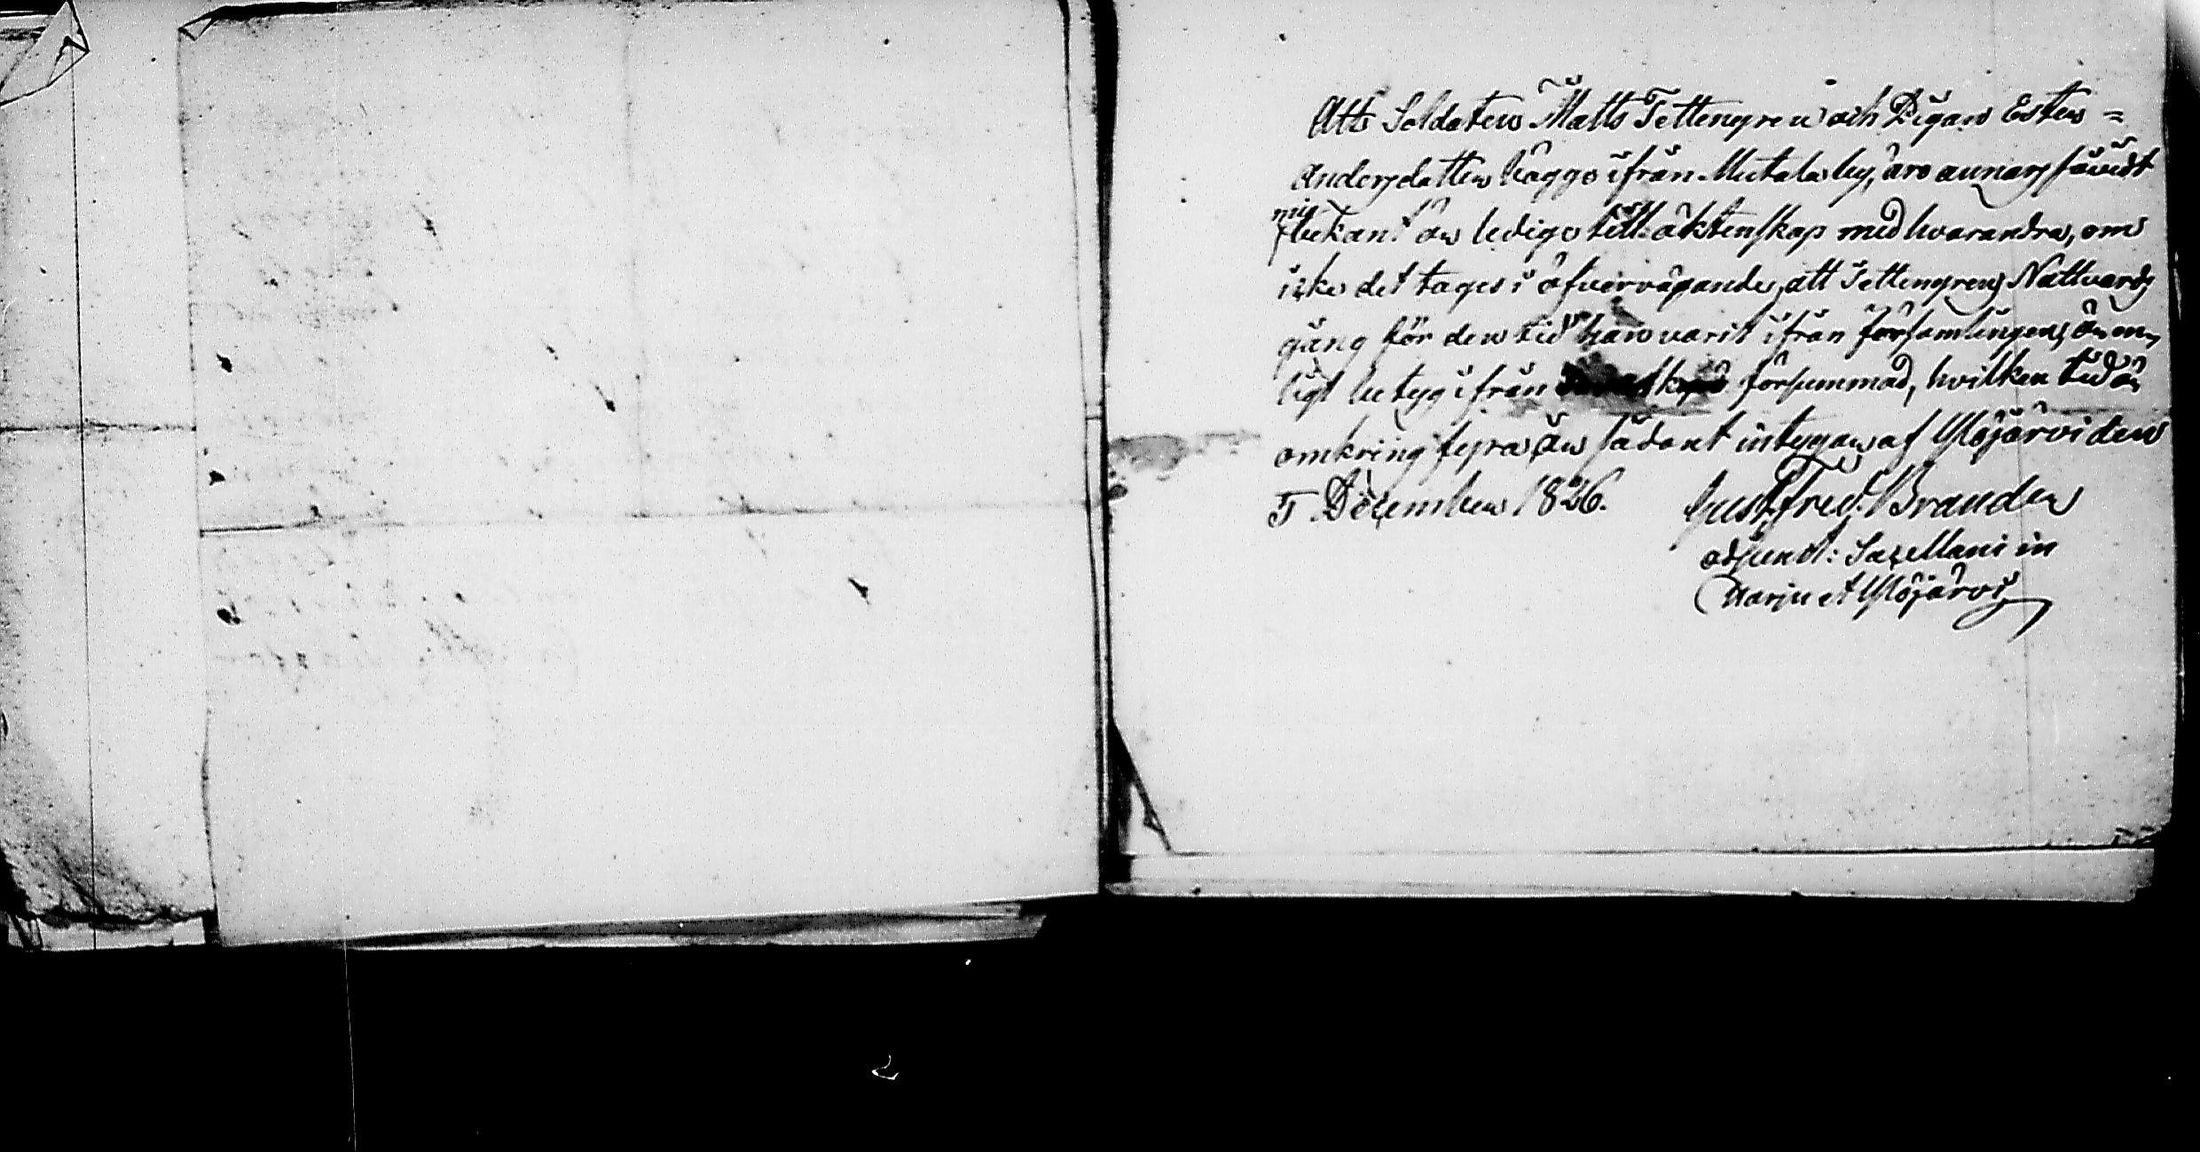 Att Soldaten Matts Tettengren och Pigan Ester =
Andersdotter bägge ifrån Mutala by, äro annars såvidt
mig
bekant är lediga till äktenskap med hvarandra, om
icke det tages i öfvervägande, att Tettengrens Nattvards
gång för den tid han varit ifrån församlingen, är en,
ligt betyg ifrån försummad, hvilken tid är
omkring fyra år sådant intygar af Ylöjärvi den
5 December 1826. Gust. Fred. Brander
adjunct: Sacellani in
Harju et Ylöjärvi